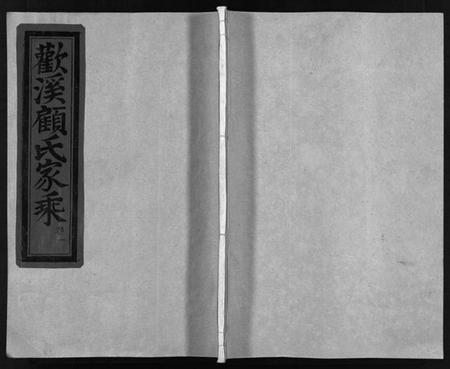 歡溪顧氏家乘